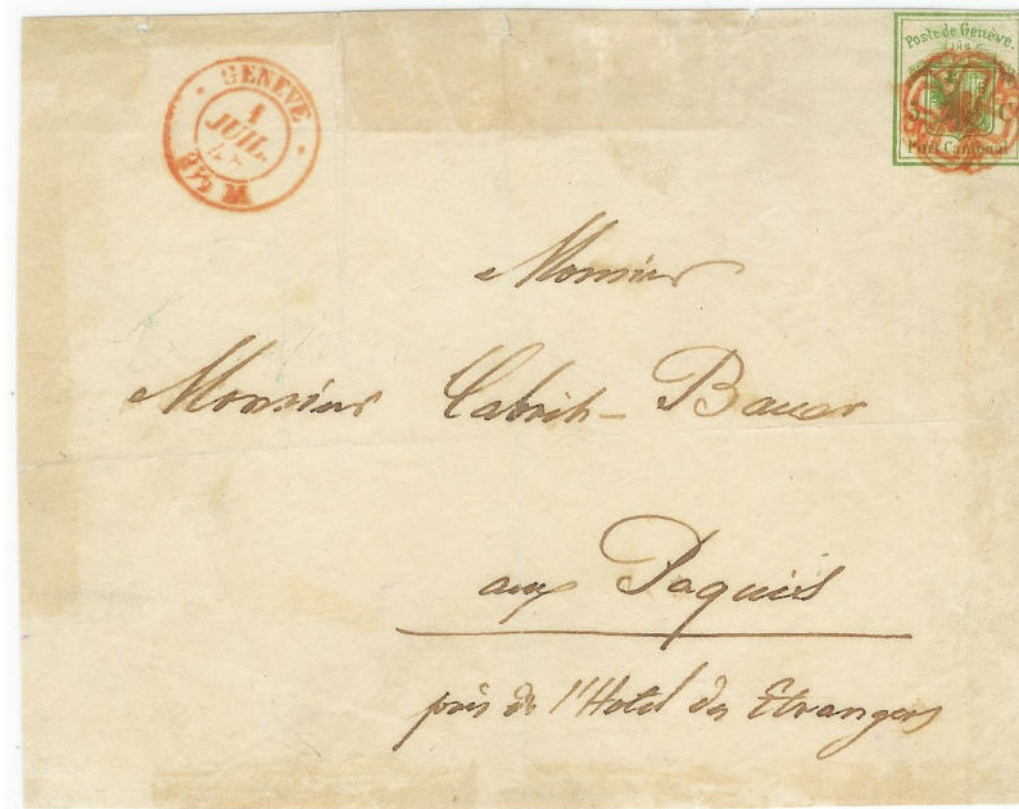 GENEVE
1
JUIL.
48
8½ M
Poste de Genève.
Port Cantonal
Monsieur
Monsieur Bauer
aux Paquis
près de l'Hotel des Etrangers